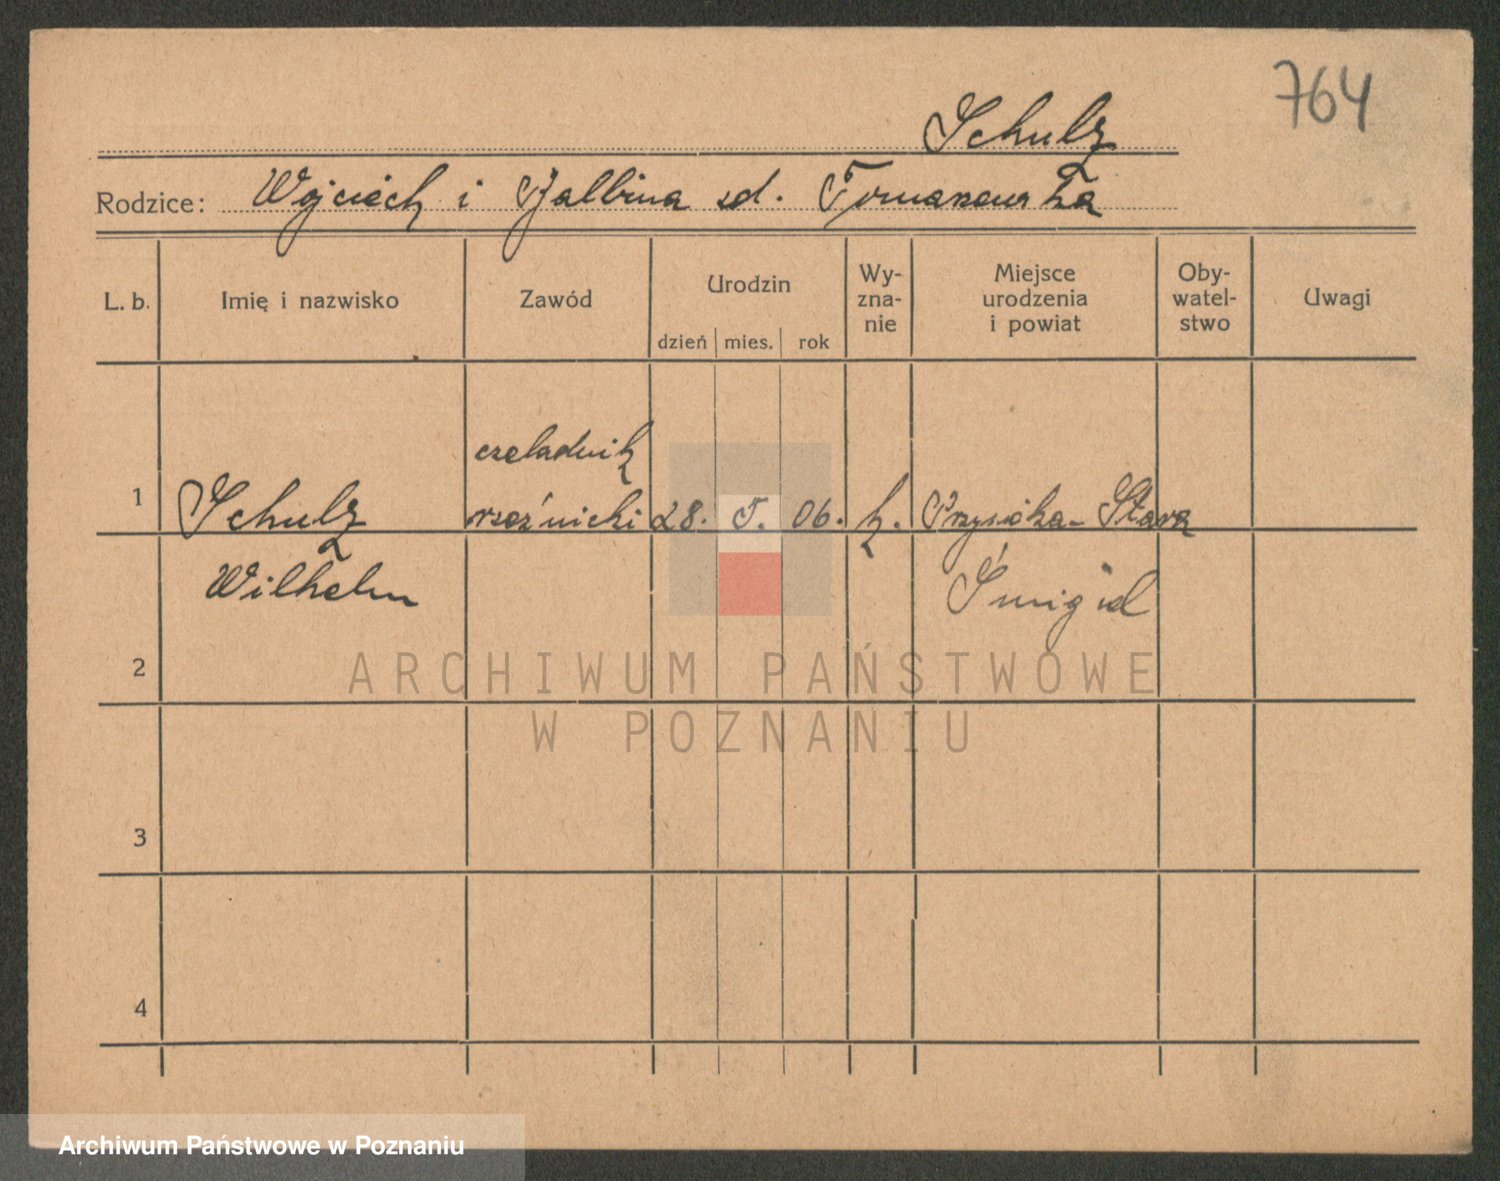 764
Schulz
Rodzice: Wojciech i Balbina zd. Tomaszewska
L. b.
Imię i nazwisko
Zawód
Urodzin
dzień mies. rok
Wy-
zna-
nie
Miejsce
urodzenia
i powiat
Oby-
watel-
stwo
Uwagi
czeladnik
1 Schulz rzeźnicki 28. 5. 06. k. Przysieka-Stara
Wilhelm Śmigiel
2
ARCHIWUM PAŃSTWOWE
W POZNANIU
3
4
Archiwum Państwowe w Poznaniu